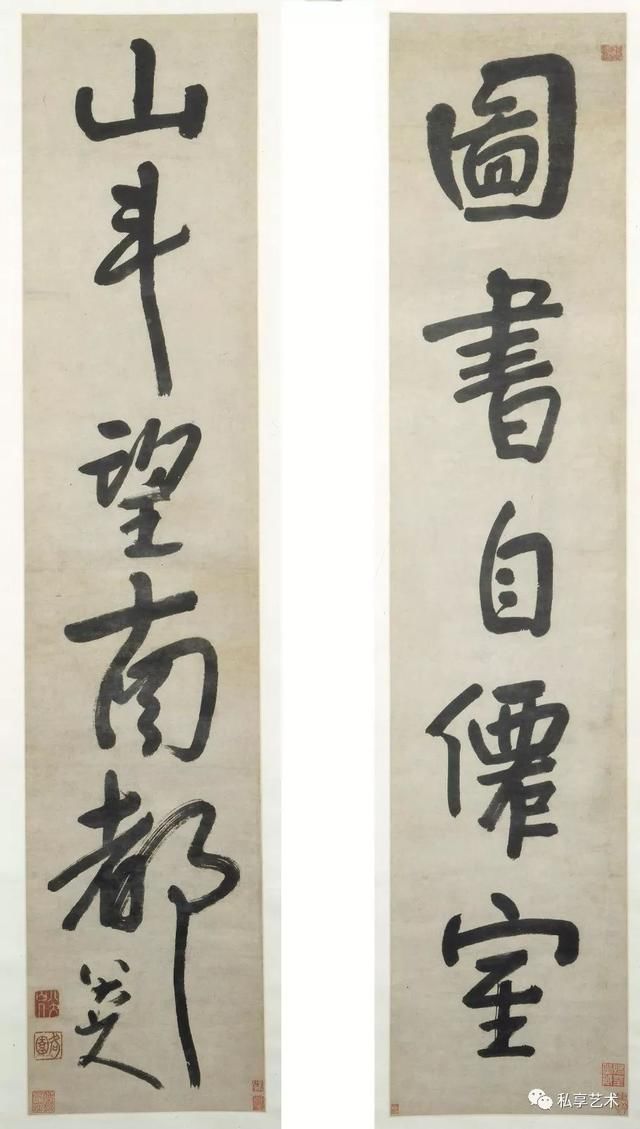 圖書自僊室
山斗望南都
八大山人
私享艺术